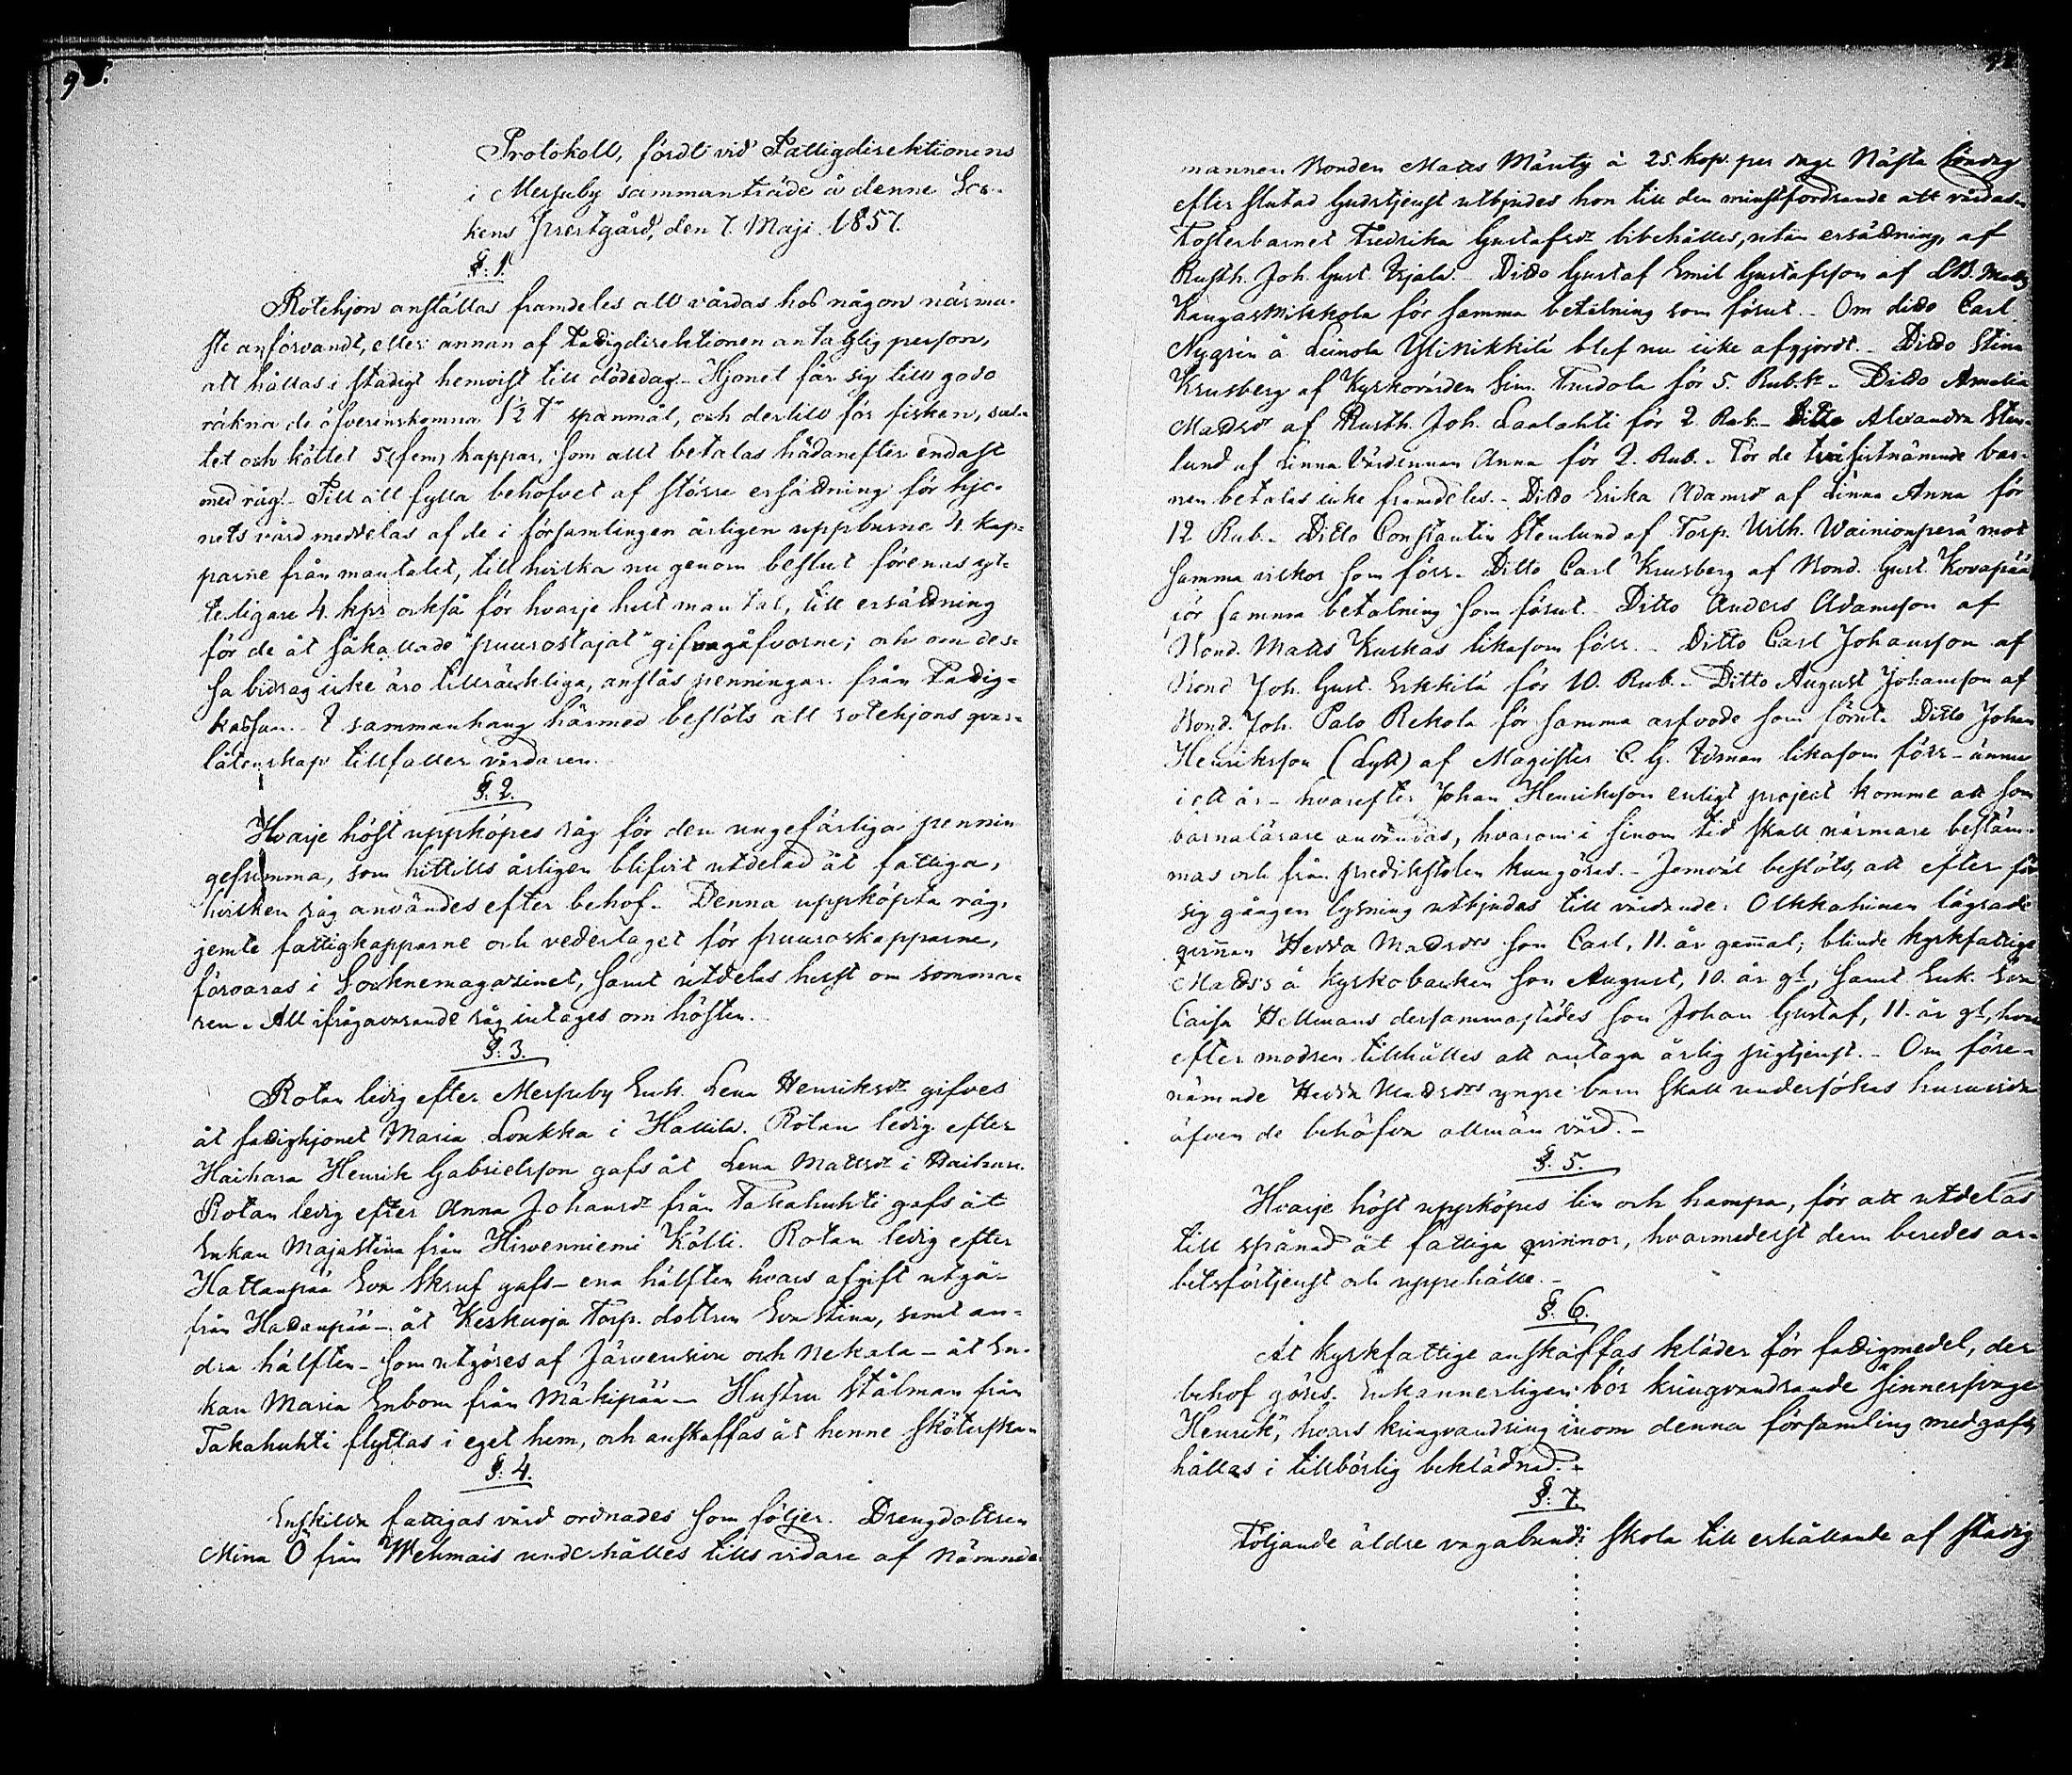 Protokoll, fördt vid Fattigdirektionens
i Messuby sammanträde å denne Soc-
kens Prestgård, den 7. Maji 1857.
§: 1.
Rotehjon anställas framdeles att vårdas hos någon närma-
ste anförvandt, eller annan af Fattigdirektionen antaglig person,
att hållas i stadigt hemvist till dödedag. Hjonet får sig till godo
räkna de öfverenskomna 1½ Tr spanmål, och dertill för fisken, sal-
tet och köttet 5 (fem) kappar, som allt betalas hädanefter endast
med råg. Till att fylla behofvet af större ersättning för hjo-
nets vård meddelas af de i församlingen årligen uppburne 4 kap-
parne från mantalet, till hvilka nu genom beslut förenas yt-
terligare 4. kprr också för hvarje helt mantal, till ersättning
för de åt såkallade "puurostajat" gifna gåfvorne; och om des-
sa bidrag icke äro tillräckliga, anslås penningar från Fattig-
kassan. I sammanhang härmed beslöts att rotehjons qvar-
låtenskap tillfaller vårdaren.
§: 2.
Hvarje höst uppköpes råg för den ungefärliga pennin-
gesumma, som hittills årligen blifvit utdelad åt fattiga,
hvilken råg användes efter behof. Denna uppköpta råg,
jemte fattigkapparne och vederlaget för puuroskapparne,
förvaras i Socknemagasinet, samt utdelas helst om somma-
ren. All ifrågavarande råg intages om hösten.
§: 3.
Rotan ledig efter Messuby Enk. Lena Henriksdr gifves
åt fattighjonet Maria Loukka i Hallila. Rotan ledig efter
Haihara Henrik Gabrielsson gafs åt Lena Mattsdr i Haihara.
Rotan ledig efter Anna Johansdr från Takahuhti gafs åt
Enkan Majastina från Hirvenniemi Kölli. Rotan ledig efter
Hattanpää Eva Skruf gafs – ena hälften hvars afgift utgår
från Hattanpää – åt Keskuoja Torp. dottren Eva Stina, samt an-
dra hälften – som utgöres af Järvensivu och Nekala – åt En-
kan Maria Enbom från Mäkipää. – Hustru Stålman från
Takahuhti flyttas i eget hem, och anskaffas åt henne sköterska.
§: 4.
Enskilda fattigas vård ordnades som följer. Drengdottren
Mina Ö från Wehmais underhålles tills vidare af Nämnde-
mannen Bonden Matts Mänty à 25. kop. per dag. Nästa Söndag
efter slutad Gudstjenst utbjudes hon till den minstfordrande att vårdas.
Fosterbarnet Fredrika Gustafsdr bibehålles, utan ersättning, af
Rusth. Joh. Gust. . Ditto Gustaf Emil Gustafsson af
Kangas Mikkola för samma betalning som förut. – Om ditto Carl
Nygrén å Leinola Yli Nikkilä blef nu icke afgjordt. – Ditto Stina
Krusberg af Kyrkovärden Sim. för 5. Rub. – Ditto Amalia
Mattsdr af Rusth. Joh. Laalahti för 2 Rub. – Ditto Alexandra Sten-
lund af Linna Anna för 2. Rub. – För de två sistnämnde bar-
nen betalas icke framdeles. – Ditto Erika Adamsdr af Linna Anna för
12 Rub. – Ditto Constantin Stenlund af Torp. Wilh. Wainionperä mot
samma vilkor som förr. Ditto Carl Krusberg af Bond. Gust. Kovapää
för samma betalning som förut. – Ditto Anders Adamsson af
Bond. Matts Kuskas likasom förr. – Ditto Carl Johansson af
Bond. Joh. Gust. Erkkilä för 10. Rub. – Ditto August Johansson af
Bond. Joh. Palo Rekola för samma arfvode som förut. Ditto Johan
Henriksson (Lytt) af Magister C. G. Edman likasom förr – ännu
i ett år – hvarefter Johan Henriksson enligt project komme att som
barnalärare användas, hvarom i sinom tid skall närmare bestäm-
mas och från predikstolen kungöras. – Jemväl beslöts, att efter för
sig gången lysning utbjudas till vårdande: Olkkahinen lägrade
qvinnan Hedda Mattsdrs son Carl, 11. år gam̄al; blinde kyrkfattige
Mattss å Kyrkobacken son August, 10. år gl, samt Enk. Eva
Caisa Hellmans dersammastädes son Johan Gustaf, 11. år gl, hvar-
efter modren tillhålles att antaga årlig pigtjenst. – Om före-
nämnde Hedda Mattsdrs yngre barn skall undersökas huruvida
äfven de behöfva allmän vård. –
§: 5.
Hvarje höst uppköpes lin och hampa, för att utdelas
till spånad åt fattiga qvinnor, hvarmedelst dem beredes ar-
betsförtjenst och uppehälle. –
§: 6.
Åt kyrkfattige anskaffas kläder för fattigmedel, der
behof göres. Enkannerligen bör kringvandrande sinnessvage
"Henrik", hvars kringvandring inom denna församling medgafs,
hållas i tillbörlig beklädnad. –
§: 7.
Följande äldre vagabund: skola till erhållande af stadig